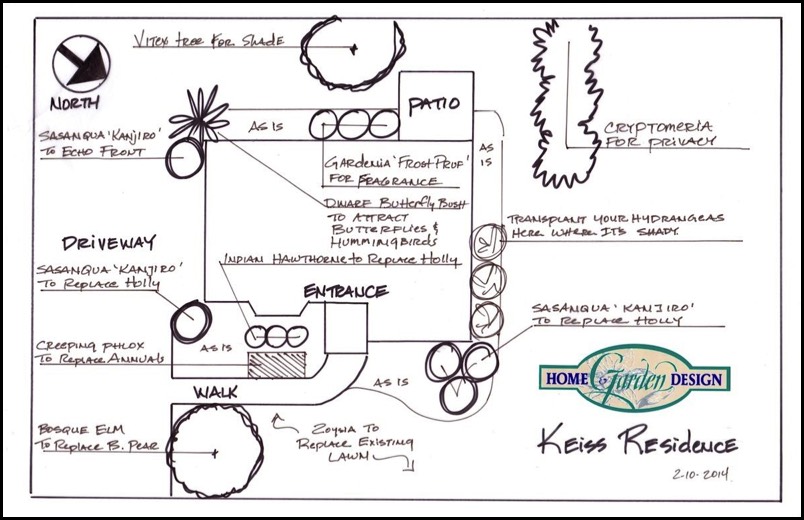 VITEX TREE FOR SHADE
NORTH
PATIO
AS IS
AS
IS
SASANQUA 'KANJIRO'
TO ECHO FRONT
CRYPTOMERIA
FOR PRIVACY
GARDENIA 'FROST PRUF'
FOR FRAGRANCE
DWARF BUTTERFLY BUSH
TO ATTRACT
BUTTERFLIES &
HUMMINGBIRDS
TRANSPLANT YOUR HYDRANGEAS
HERE WHERE IT'S SHADY
DRIVEWAY
SASANQUA 'KANJIRO'
TO REPLACE HOLLY
INDIAN HAWTHORNE TO REPLACE HOLLY
ENTRANCE
SASANQUA 'KANJIRO'
TO REPLACE HOLLY
CREEPING PHLOX
TO REPLACE ANNUALS
AS IS
AS IS
WALK
HOME & Garden DESIGN
BOSQUE ELM
TO REPLACE B. PEAR
ZOYSIA TO
REPLACE EXISTING
LAWN
KEISS RESIDENCE
2-10-2014